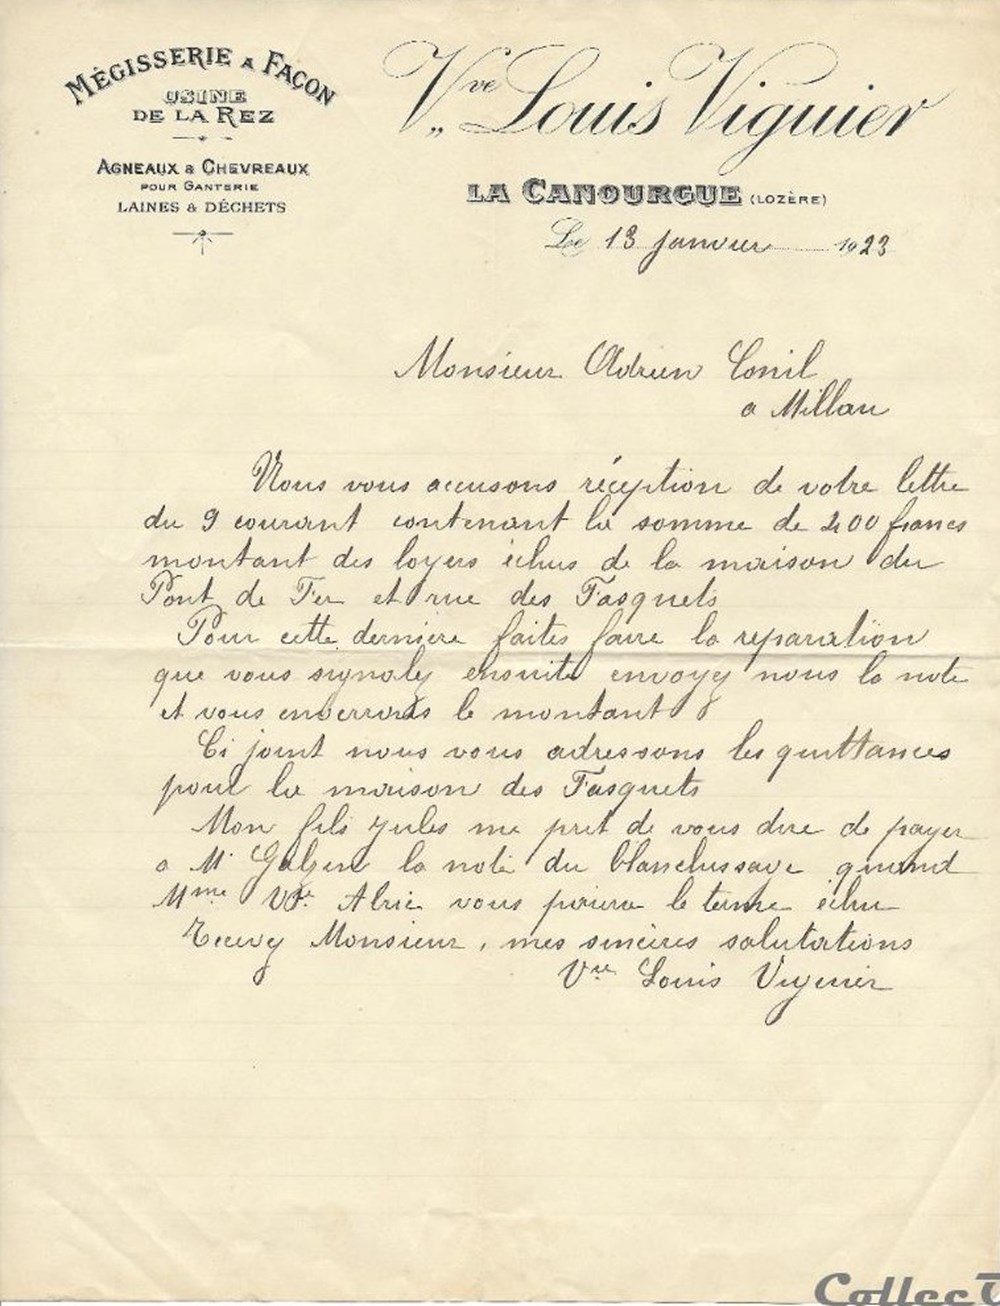 MÉGISSERIE A FAÇON
USINE
DE LA REZ
AGNEAUX & CHEVREAUX
POUR GANTERIE
LAINES & DÉCHETS
Vve Louis Viguier
LA CANOURGUE (LOZÈRE)
Le 13 janvier 1923
Monsieur Adrien Conil
a Millau
Nous vous accusons réception de votre lettre
du 9 courant contenant la somme de 400 francs
montant des loyers échus de la maison du
Pont de Fer et rue des Fasquets
Pour cette dernière faites faire la reparation
que vous signalez ensuite envoyez nous la note
et vous enverrons le montant
Ci joint nous vous adressons les quittances
pour la maison des Fasquets
Mon fils Jules me prit de vous dire de payer
a Mr Galzin la note du blanchissage quand
Mme Vve Alric vous paiera le terme échu
Recevez Monsieur, mes sincères salutations
Vve Louis Viguier
Collec